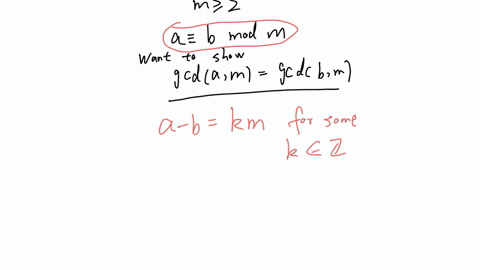 m ≥ 2
a ≡ b mod m
Want to show
gcd(a,m) = gcd(b,m)
a-b = km for some
k ∈ ℤ